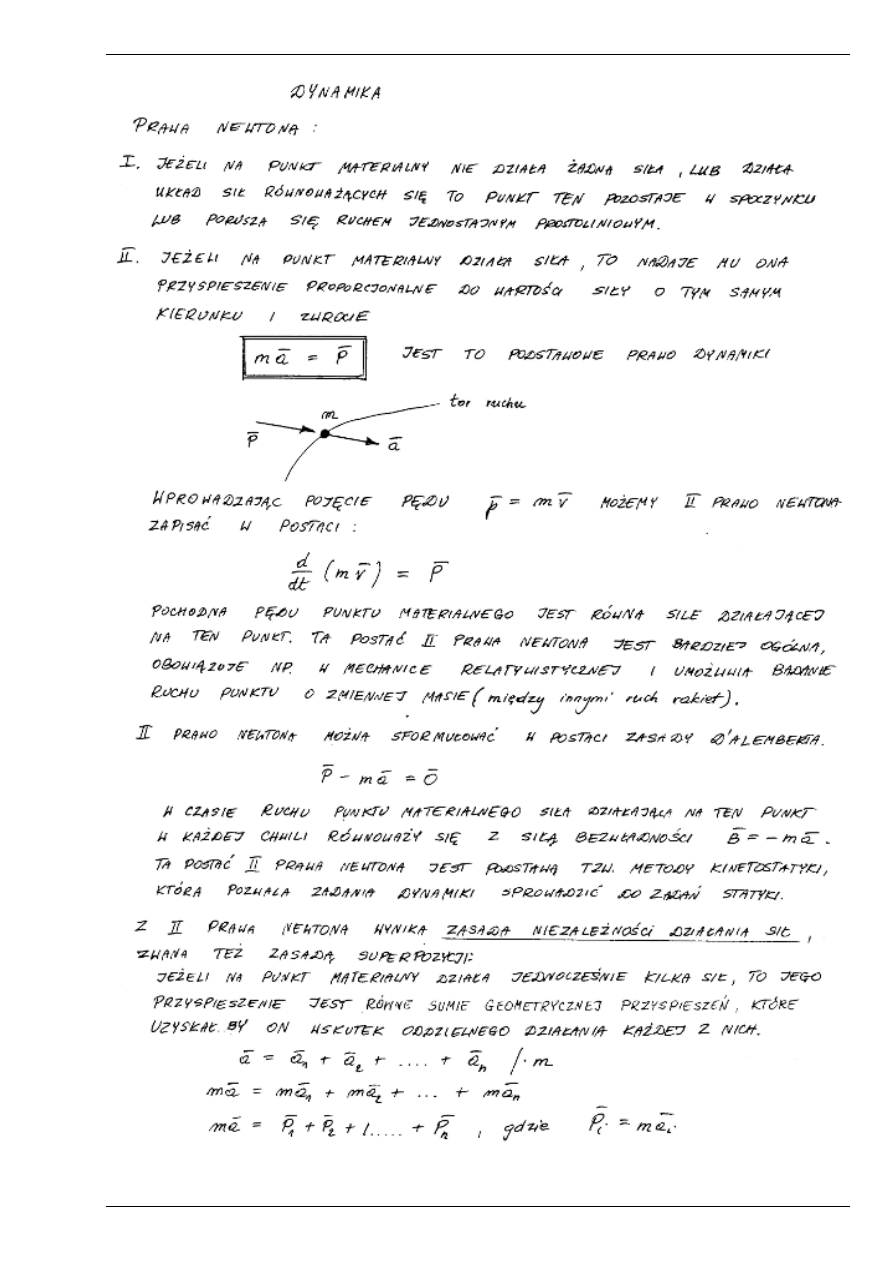 DYNAMIKA
PRAWA NEWTONA :
I. JEŻELI NA PUNKT MATERIALNY NIE DZIAŁA ŻADNA SIŁA, LUB DZIAŁA
UKŁAD SIŁ RÓWNOWAŻĄCYCH SIĘ TO PUNKT TEN POZOSTAJE W SPOCZYNKU
LUB PORUSZA SIĘ RUCHEM JEDNOSTAJNYM PROSTOLINIOWYM.
II. JEŻELI NA PUNKT MATERIALNY DZIAŁA SIŁA, TO NADAJE MU ONA
PRZYSPIESZENIE PROPORCJONALNE DO WARTOŚCI SIŁY O TYM SAMYM
KIERUNKU I ZWROCIE
m a̅ = P̅ JEST TO PODSTAWOWE PRAWO DYNAMIKI
m tor ruchu
P̅ a̅
WPROWADZAJĄC POJĘCIE PĘDU p̅ = m v̅ MOŻEMY II PRAWO NEWTONA
ZAPISAĆ W POSTACI :
d/dt (m v̅) = P̅
POCHODNA PĘDU PUNKTU MATERIALNEGO JEST RÓWNA SILE DZIAŁAJĄCEJ
NA TEN PUNKT. TA POSTAĆ II PRAWA NEWTONA JEST BARDZIEJ OGÓLNA,
OBOWIĄZUJE NP. W MECHANICE RELATYWISTYCZNEJ I UMOŻLIWIA BADANIE
RUCHU PUNKTU O ZMIENNEJ MASIE (między innymi ruch rakiet).
II PRAWO NEWTONA MOŻNA SFORMUŁOWAĆ W POSTACI ZASADY D'ALEMBERTA.
P̅ - m a̅ = 0̅
W CZASIE RUCHU PUNKTU MATERIALNEGO SIŁA DZIAŁAJĄCA NA TEN PUNKT
W KAŻDEJ CHWILI RÓWNOWAŻY SIĘ Z SIŁĄ BEZWŁADNOŚCI B̅ = - m a̅.
TA POSTAĆ II PRAWA NEWTONA JEST PODSTAWĄ TZW. METODY KINETOSTATYKI,
KTÓRA POZWALA ZADANIA DYNAMIKI SPROWADZIĆ DO ZADAŃ STATYKI.
Z II PRAWA NEWTONA WYNIKA ZASADA NIEZALEŻNOŚCI DZIAŁANIA SIŁ,
ZWANA TEŻ ZASADĄ SUPERPOZYCJI:
JEŻELI NA PUNKT MATERIALNY DZIAŁA JEDNOCZEŚNIE KILKA SIŁ, TO JEGO
PRZYSPIESZENIE JEST RÓWNE SUMIE GEOMETRYCZNEJ PRZYSPIESZEŃ, KTÓRE
UZYSKAŁ BY ON WSKUTEK ODDZIELNEGO DZIAŁANIA KAŻDEJ Z NICH.
a̅ = a̅₁ + a̅₂ + .... + a̅ₙ /· m
m a̅ = m a̅₁ + m a̅₂ + ... + m a̅ₙ
m a̅ = P̅₁ + P̅₂ + /..... + P̅ₙ , gdzie P̅ᵢ = m a̅ᵢ.